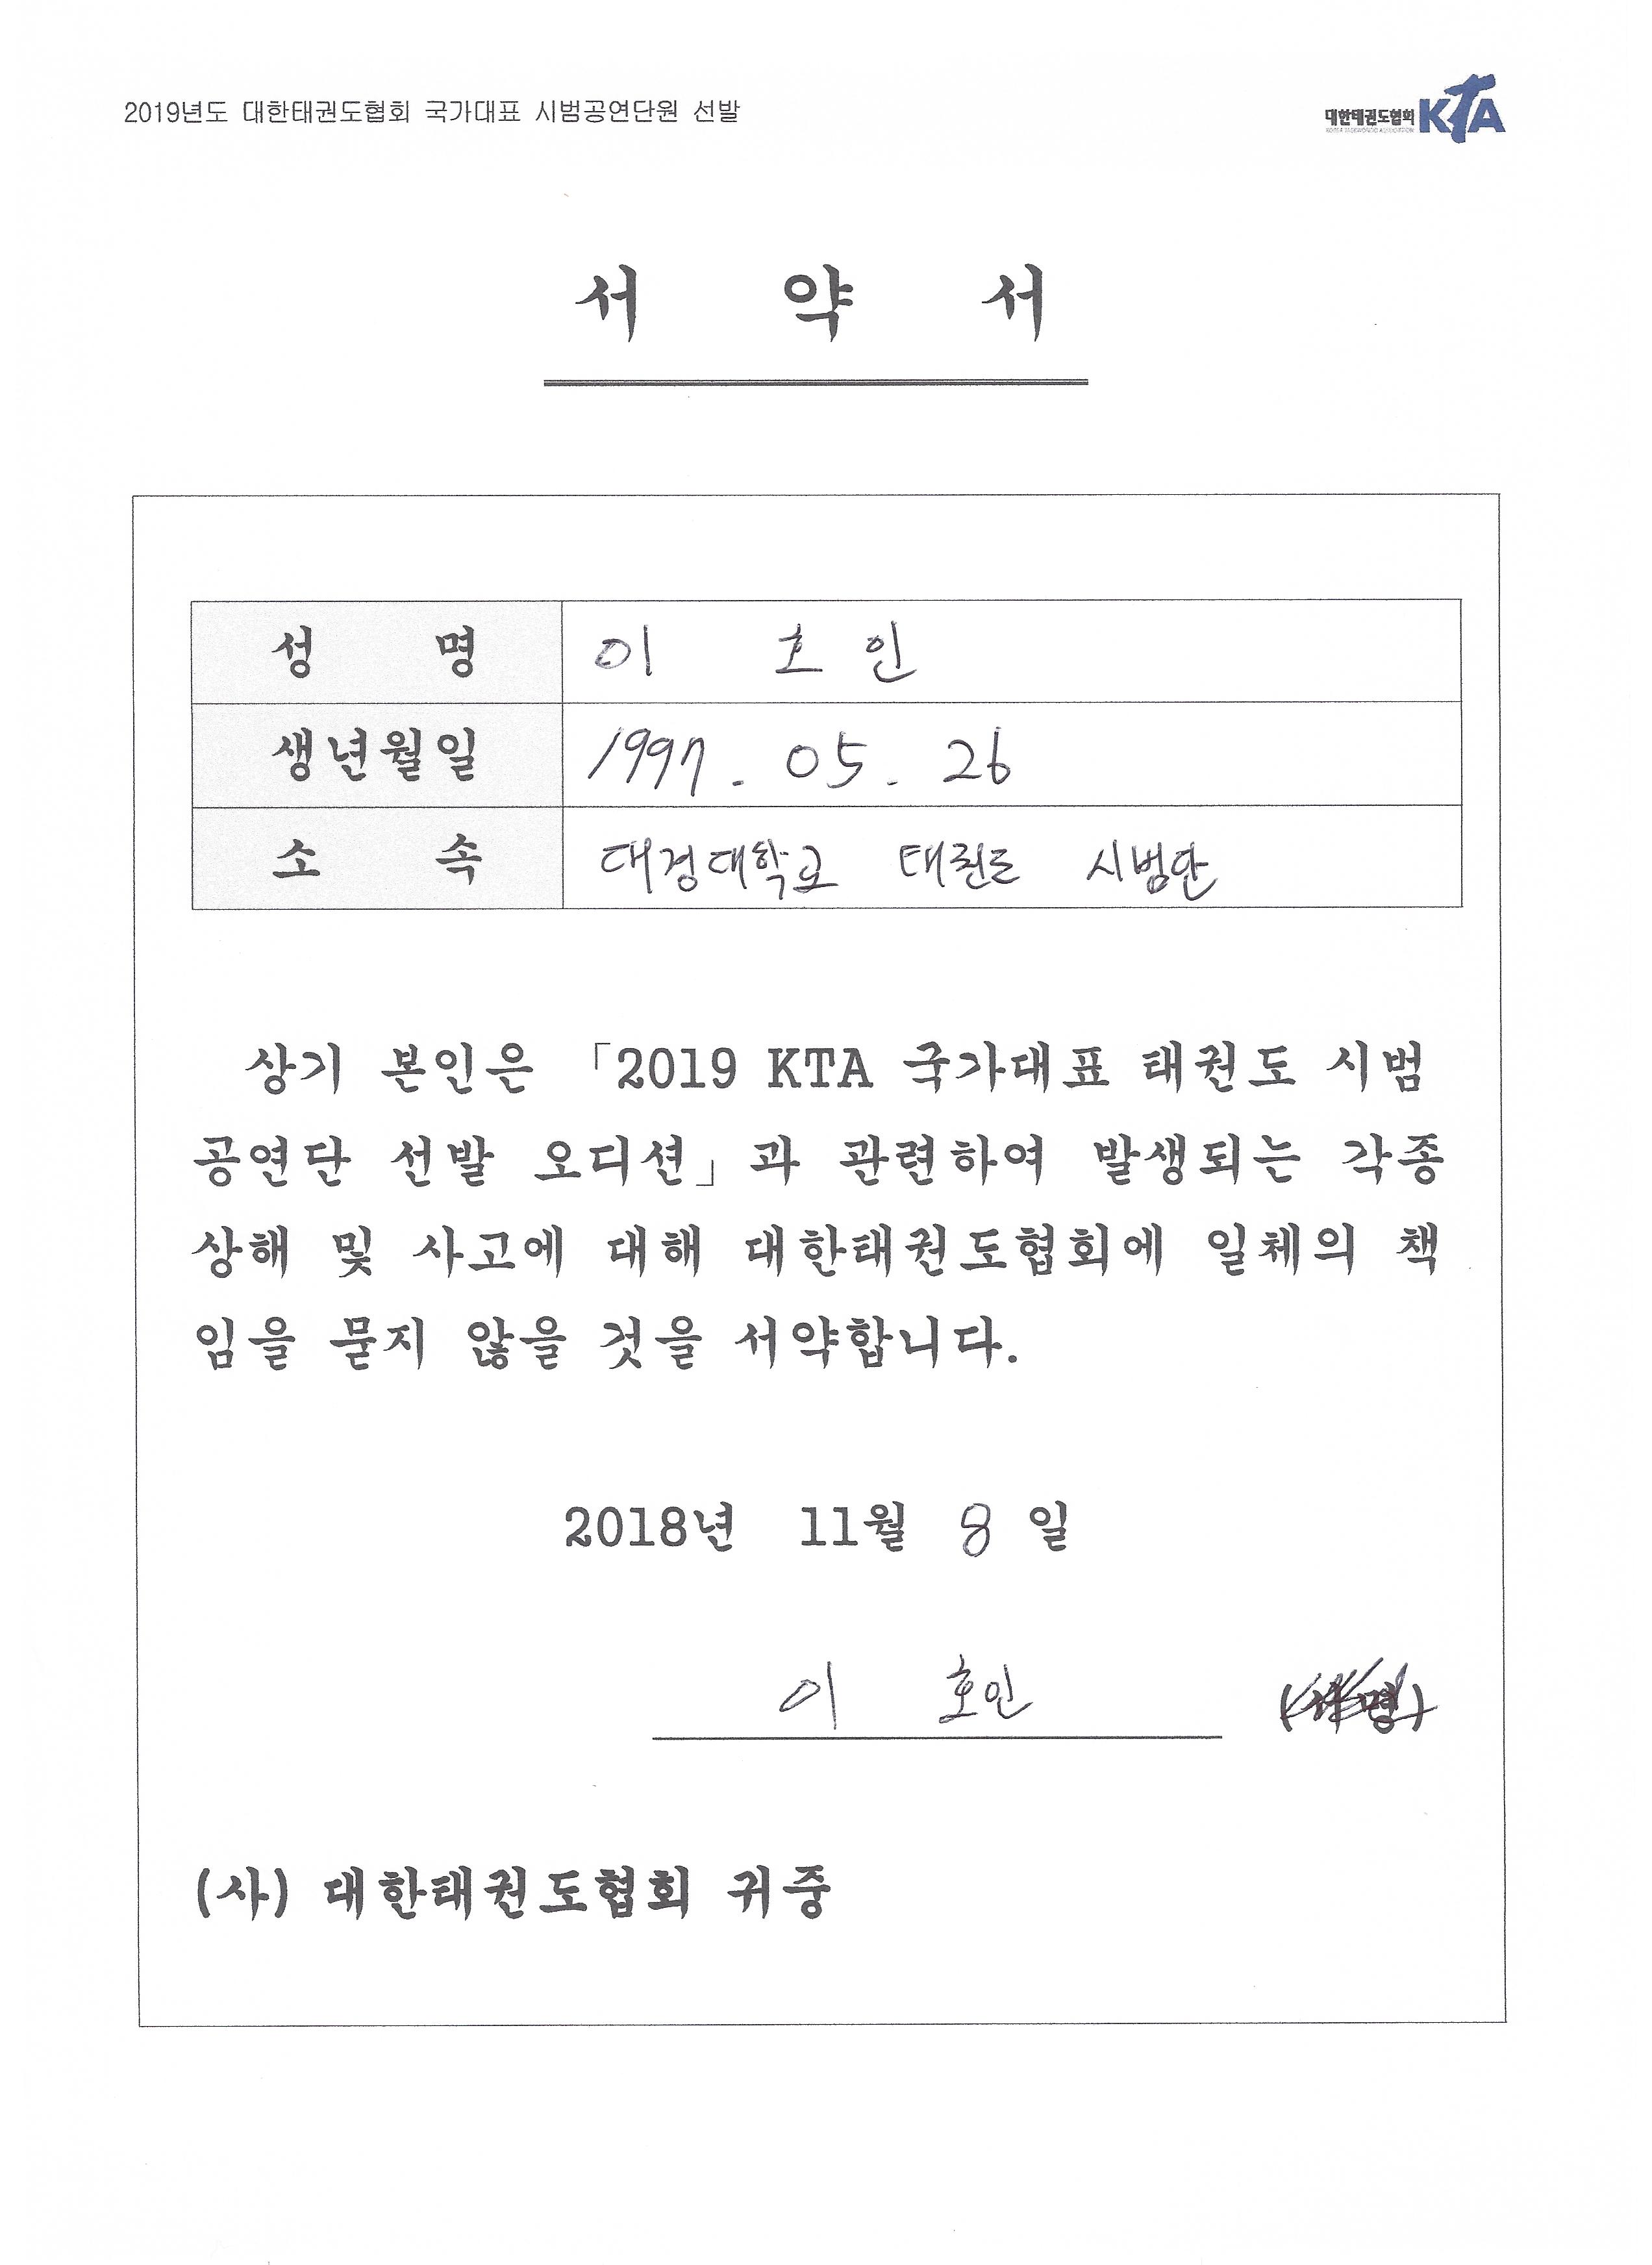 2019년도 대한태권도협회 국가대표 시범공연단원 선발
대한태권도협회 KTA
KOREA TAEKWONDO ASSOCIATION
서 약 서
성 명 이 호 인
생년월일 1997. 05. 26
소 속 대경대학교 태권도 시범단
상기 본인은 「2019 KTA 국가대표 태권도 시범
공연단 선발 오디션」과 관련하여 발생되는 각종
상해 및 사고에 대해 대한태권도협회에 일체의 책
임을 묻지 않을 것을 서약합니다.
2018년 11월 8 일
이 호인 (서명)
(사) 대한태권도협회 귀중